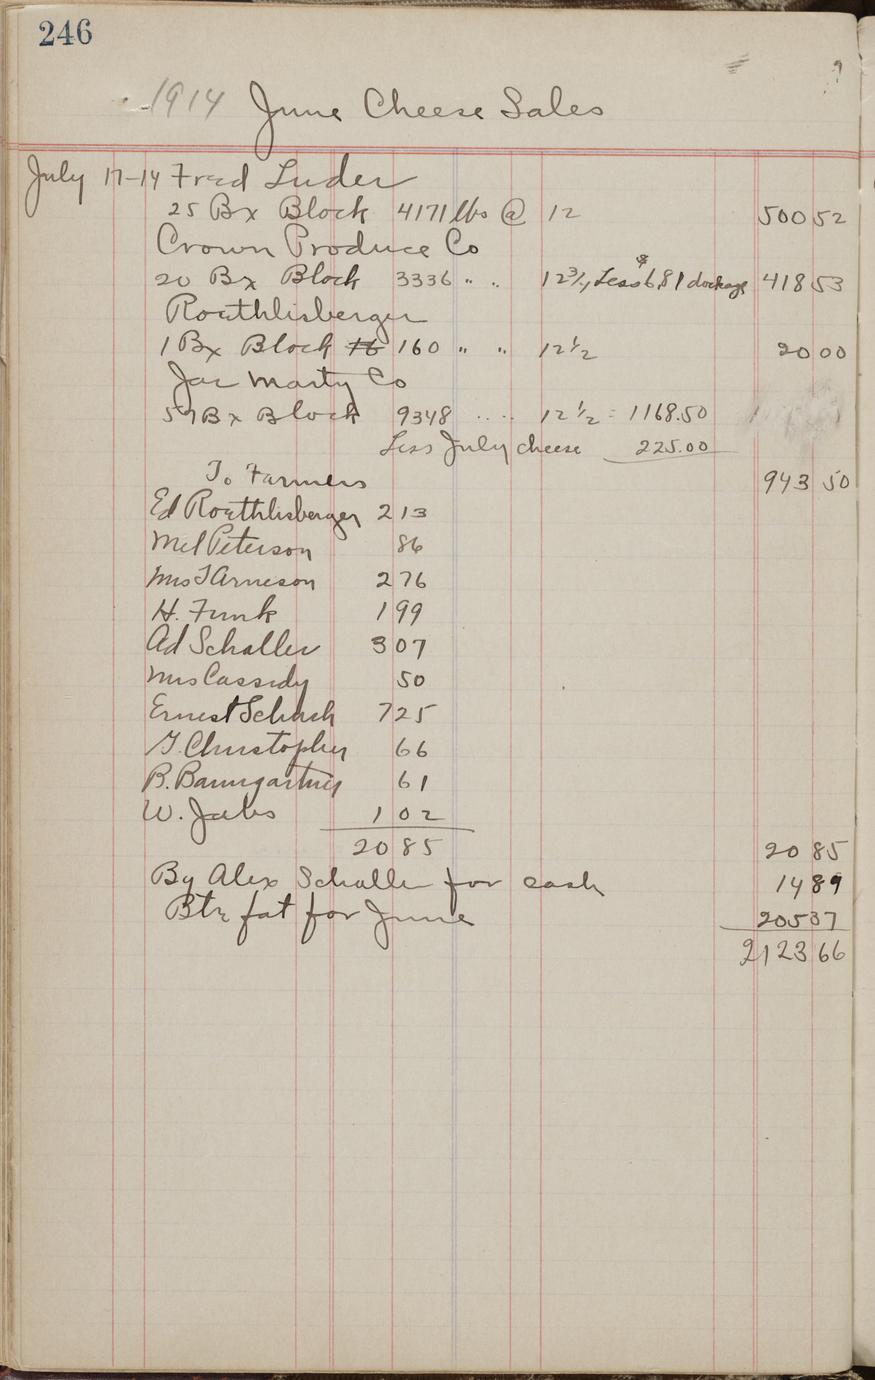 246
1914 June Cheese Sales
July 17-14 Fred Luder
25 Bx Block 4171 lbs @ 12 500 52
Crown Produce Co
20 Bx Block 3336 " " 12 3/4, Less $6.81 dockage 418 53
Roethlisberger
1 Bx Block 160 " " 12 1/2 20 00
Jac Marty Co
57 Bx Block 9348 " " 12 1/2 = 1168.50
Less July cheese 225.00
To Farmers 943 50
Ed Roethlisberger 2 13
Mel Peterson 86
Mrs T Arneson 2 76
H. Funk 1 99
Ad Schaller 3 07
Mrs Cassidy 50
Ernest Schuch 7 25
G. Christopher 66
B. Baumgartner 61
W. Jabs 1 02
20 85 20 85
By Alex Schaller for cash 14 89
Btr fat for June 205 37
2123 66